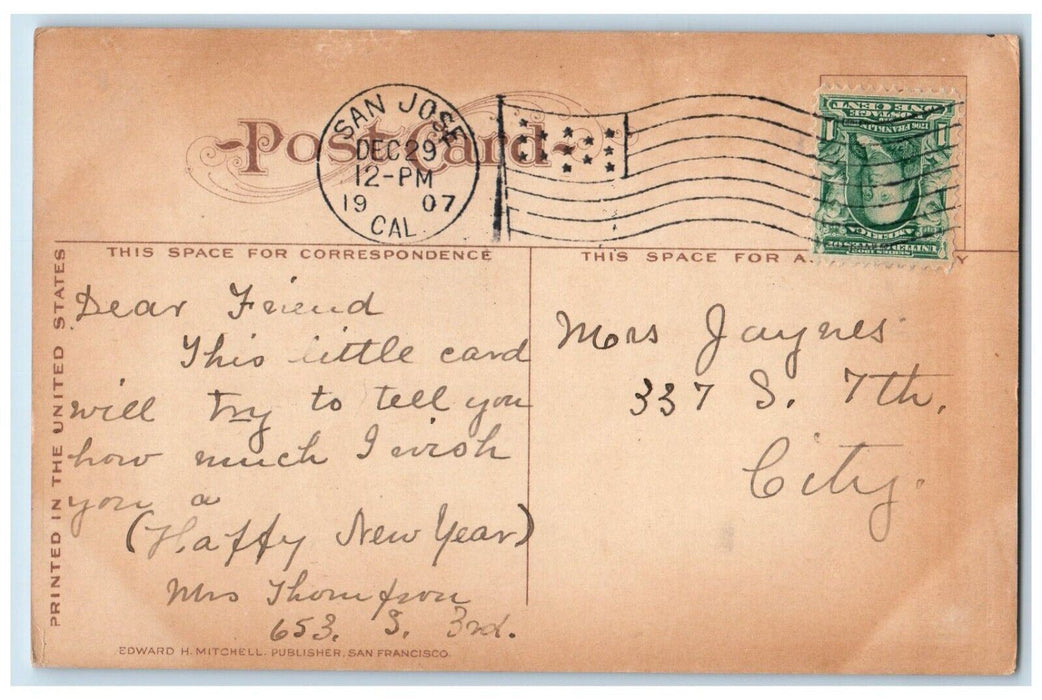 Post Card
SAN JOSE
DEC 29
12-PM
19 07
CAL.
ONE CENT
POSTAGE
FRANKLIN
UNITED STATES OF
AMERICA
THIS SPACE FOR CORRESPONDENCE
THIS SPACE FOR A
Y
PRINTED IN THE UNITED STATES
Dear Friend
This little card
will try to tell you
how much I wish
you a
(Happy New Year)
Mrs Thompson
653. S. 3rd.
Mrs Jaynes
337 S. 7th.
City.
EDWARD H. MITCHELL, PUBLISHER, SAN FRANCISCO.